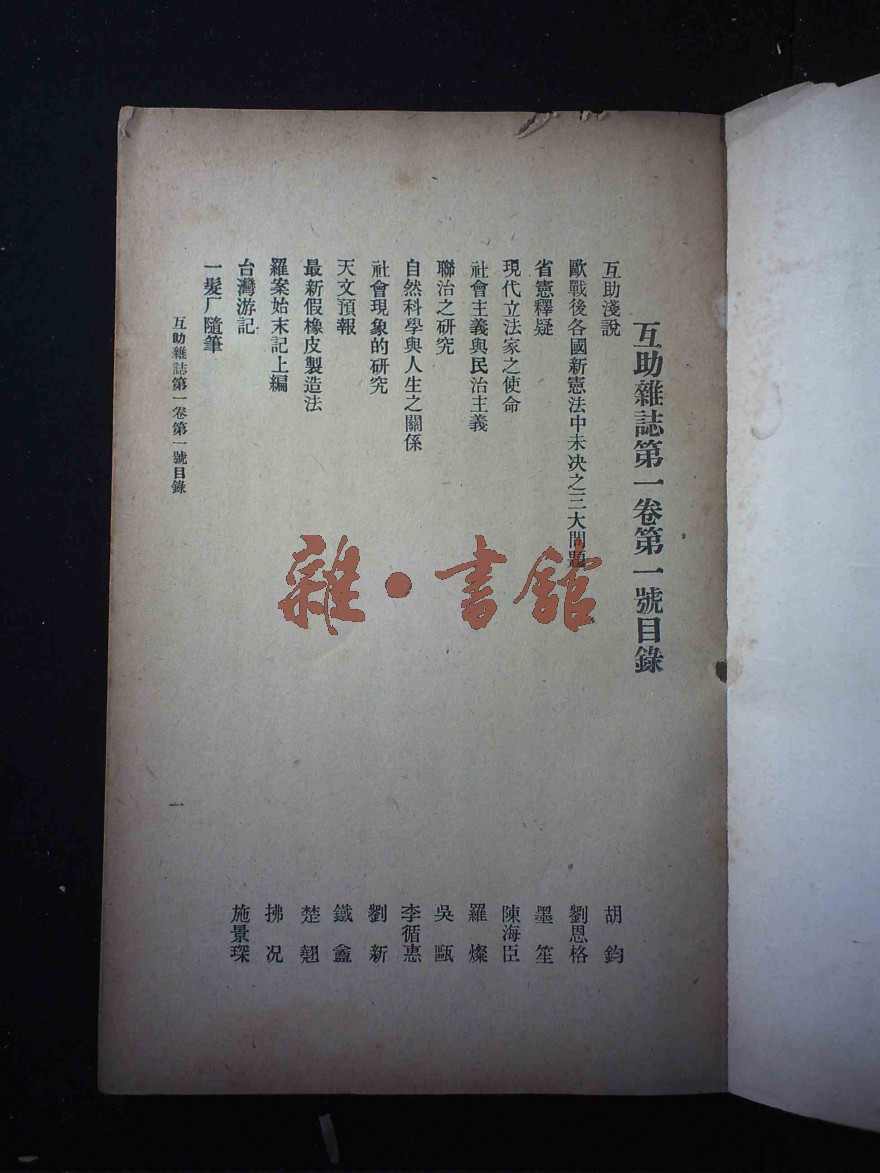 互助雜誌第一卷第一號目錄
互助淺說 胡鈞
歐戰後各國新憲法中未决之三大問題 劉恩格
省憲釋疑 墨笙
現代立法家之使命 陳海臣
社會主義與民治主義 羅燦
聯治之研究 吳甌
自然科學與人生之關係 李循惠
社會現象的研究 劉新
天文預報 鐵盦
最新假橡皮製造法 楚翹
羅案始末記上編 拂况
台灣游記 施景琛
一髮厂隨筆
互助雜誌第一卷第一號目錄
一
雜·書館